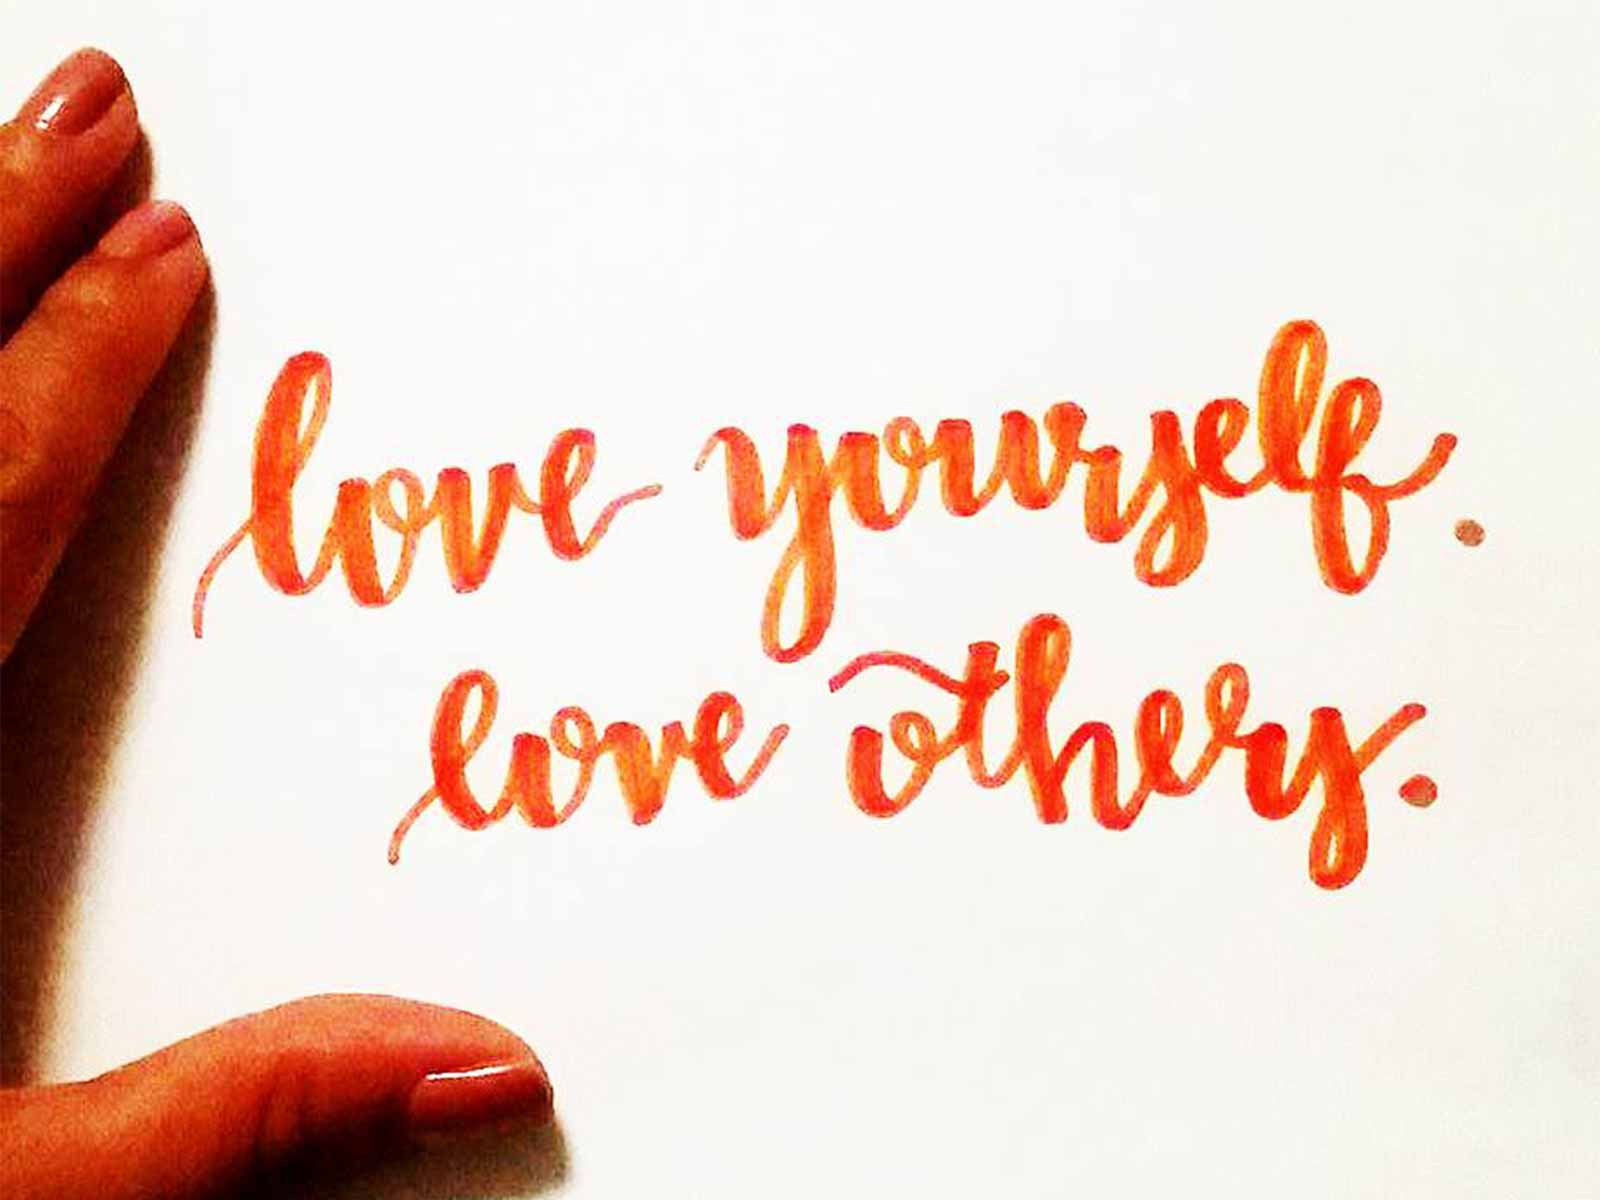 love yourself.
love others.